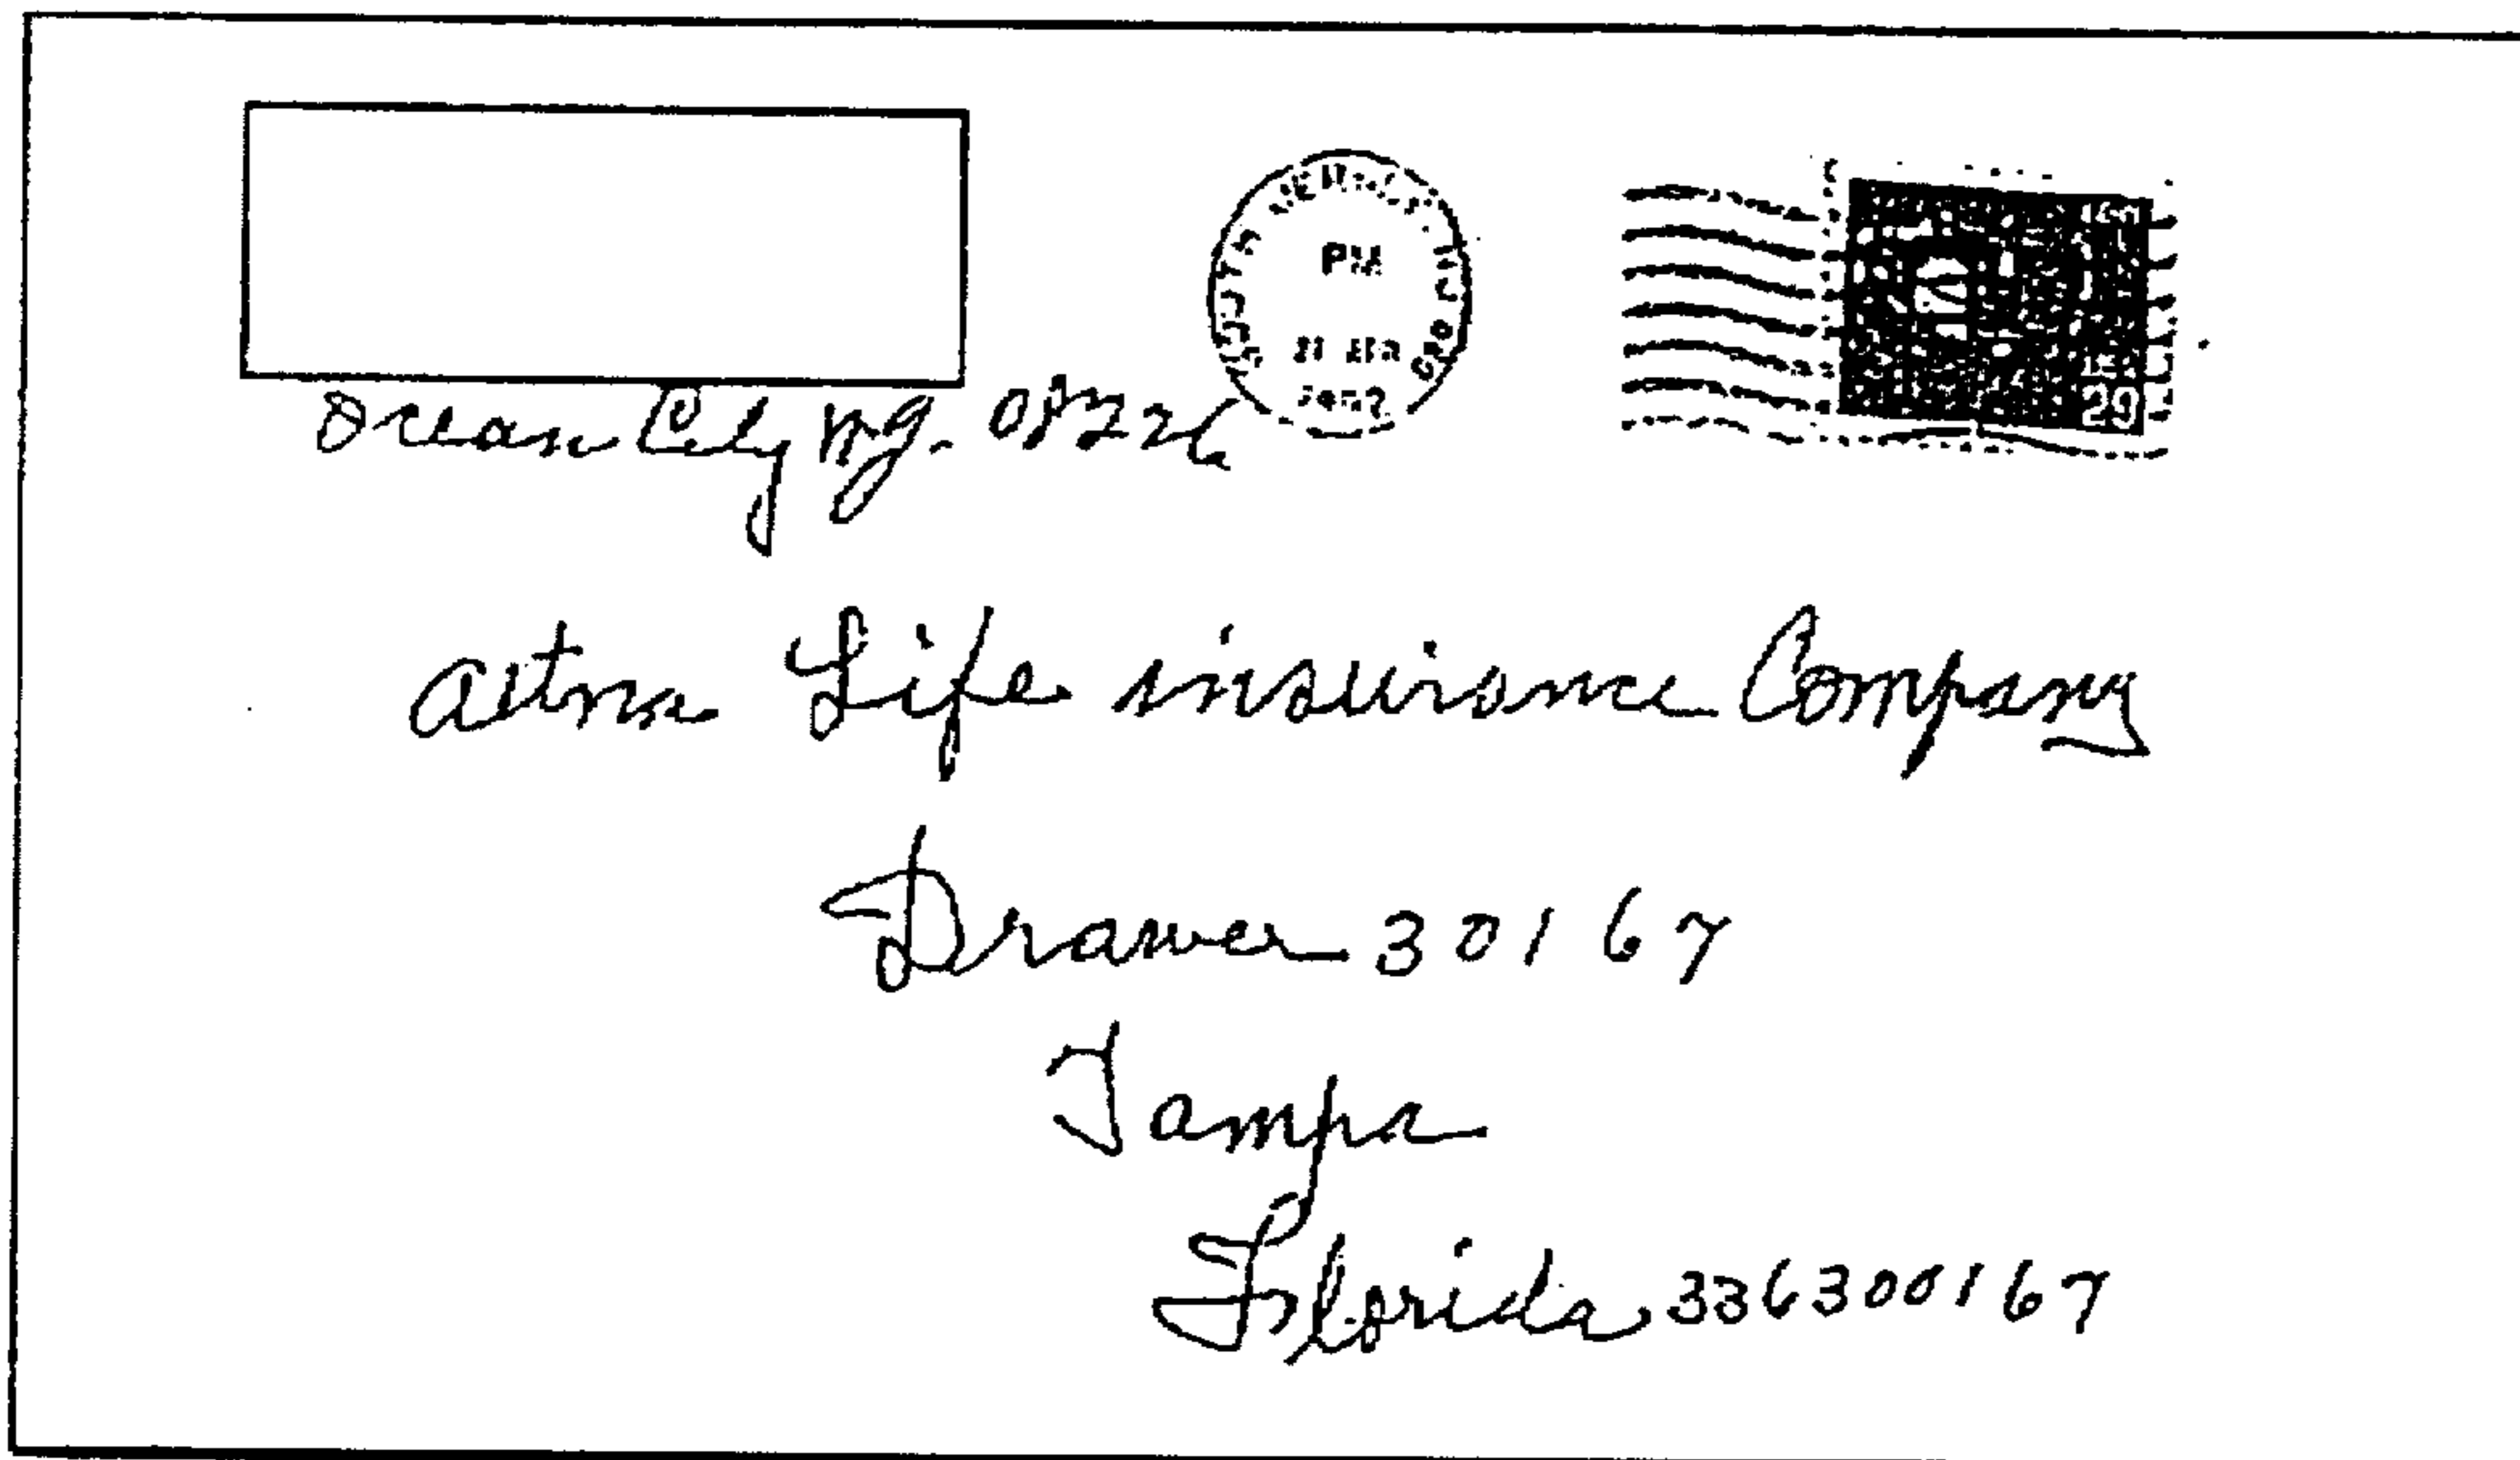 Ocean City N.J. 08226
PM
aetna Life insurance Company
Drawer 30167
Tampa
Florida 336300167
29